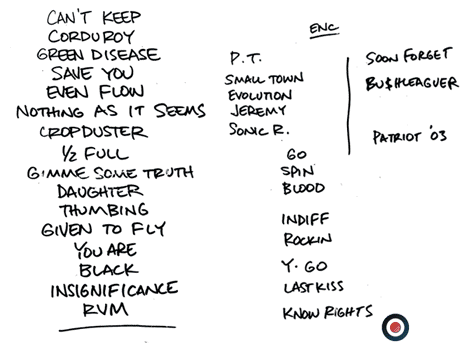 CAN'T KEEP
CORDUROY
GREEN DISEASE
SAVE YOU
EVEN FLOW
NOTHING AS IT SEEMS
CROPDUSTER
1/2 FULL
GIMME SOME TRUTH
DAUGHTER
THUMBING
GIVEN TO FLY
YOU ARE
BLACK
INSIGNIFICANCE
RVM
ENC
P.T.
SMALL TOWN
EVOLUTION
JEREMY
SONIC R.
GO
SPIN
BLOOD
INDIFF
ROCKIN
Y. GO
LAST KISS
KNOW RIGHTS
SOON FORGET
BU$HLEAGUER
PATRIOT '03